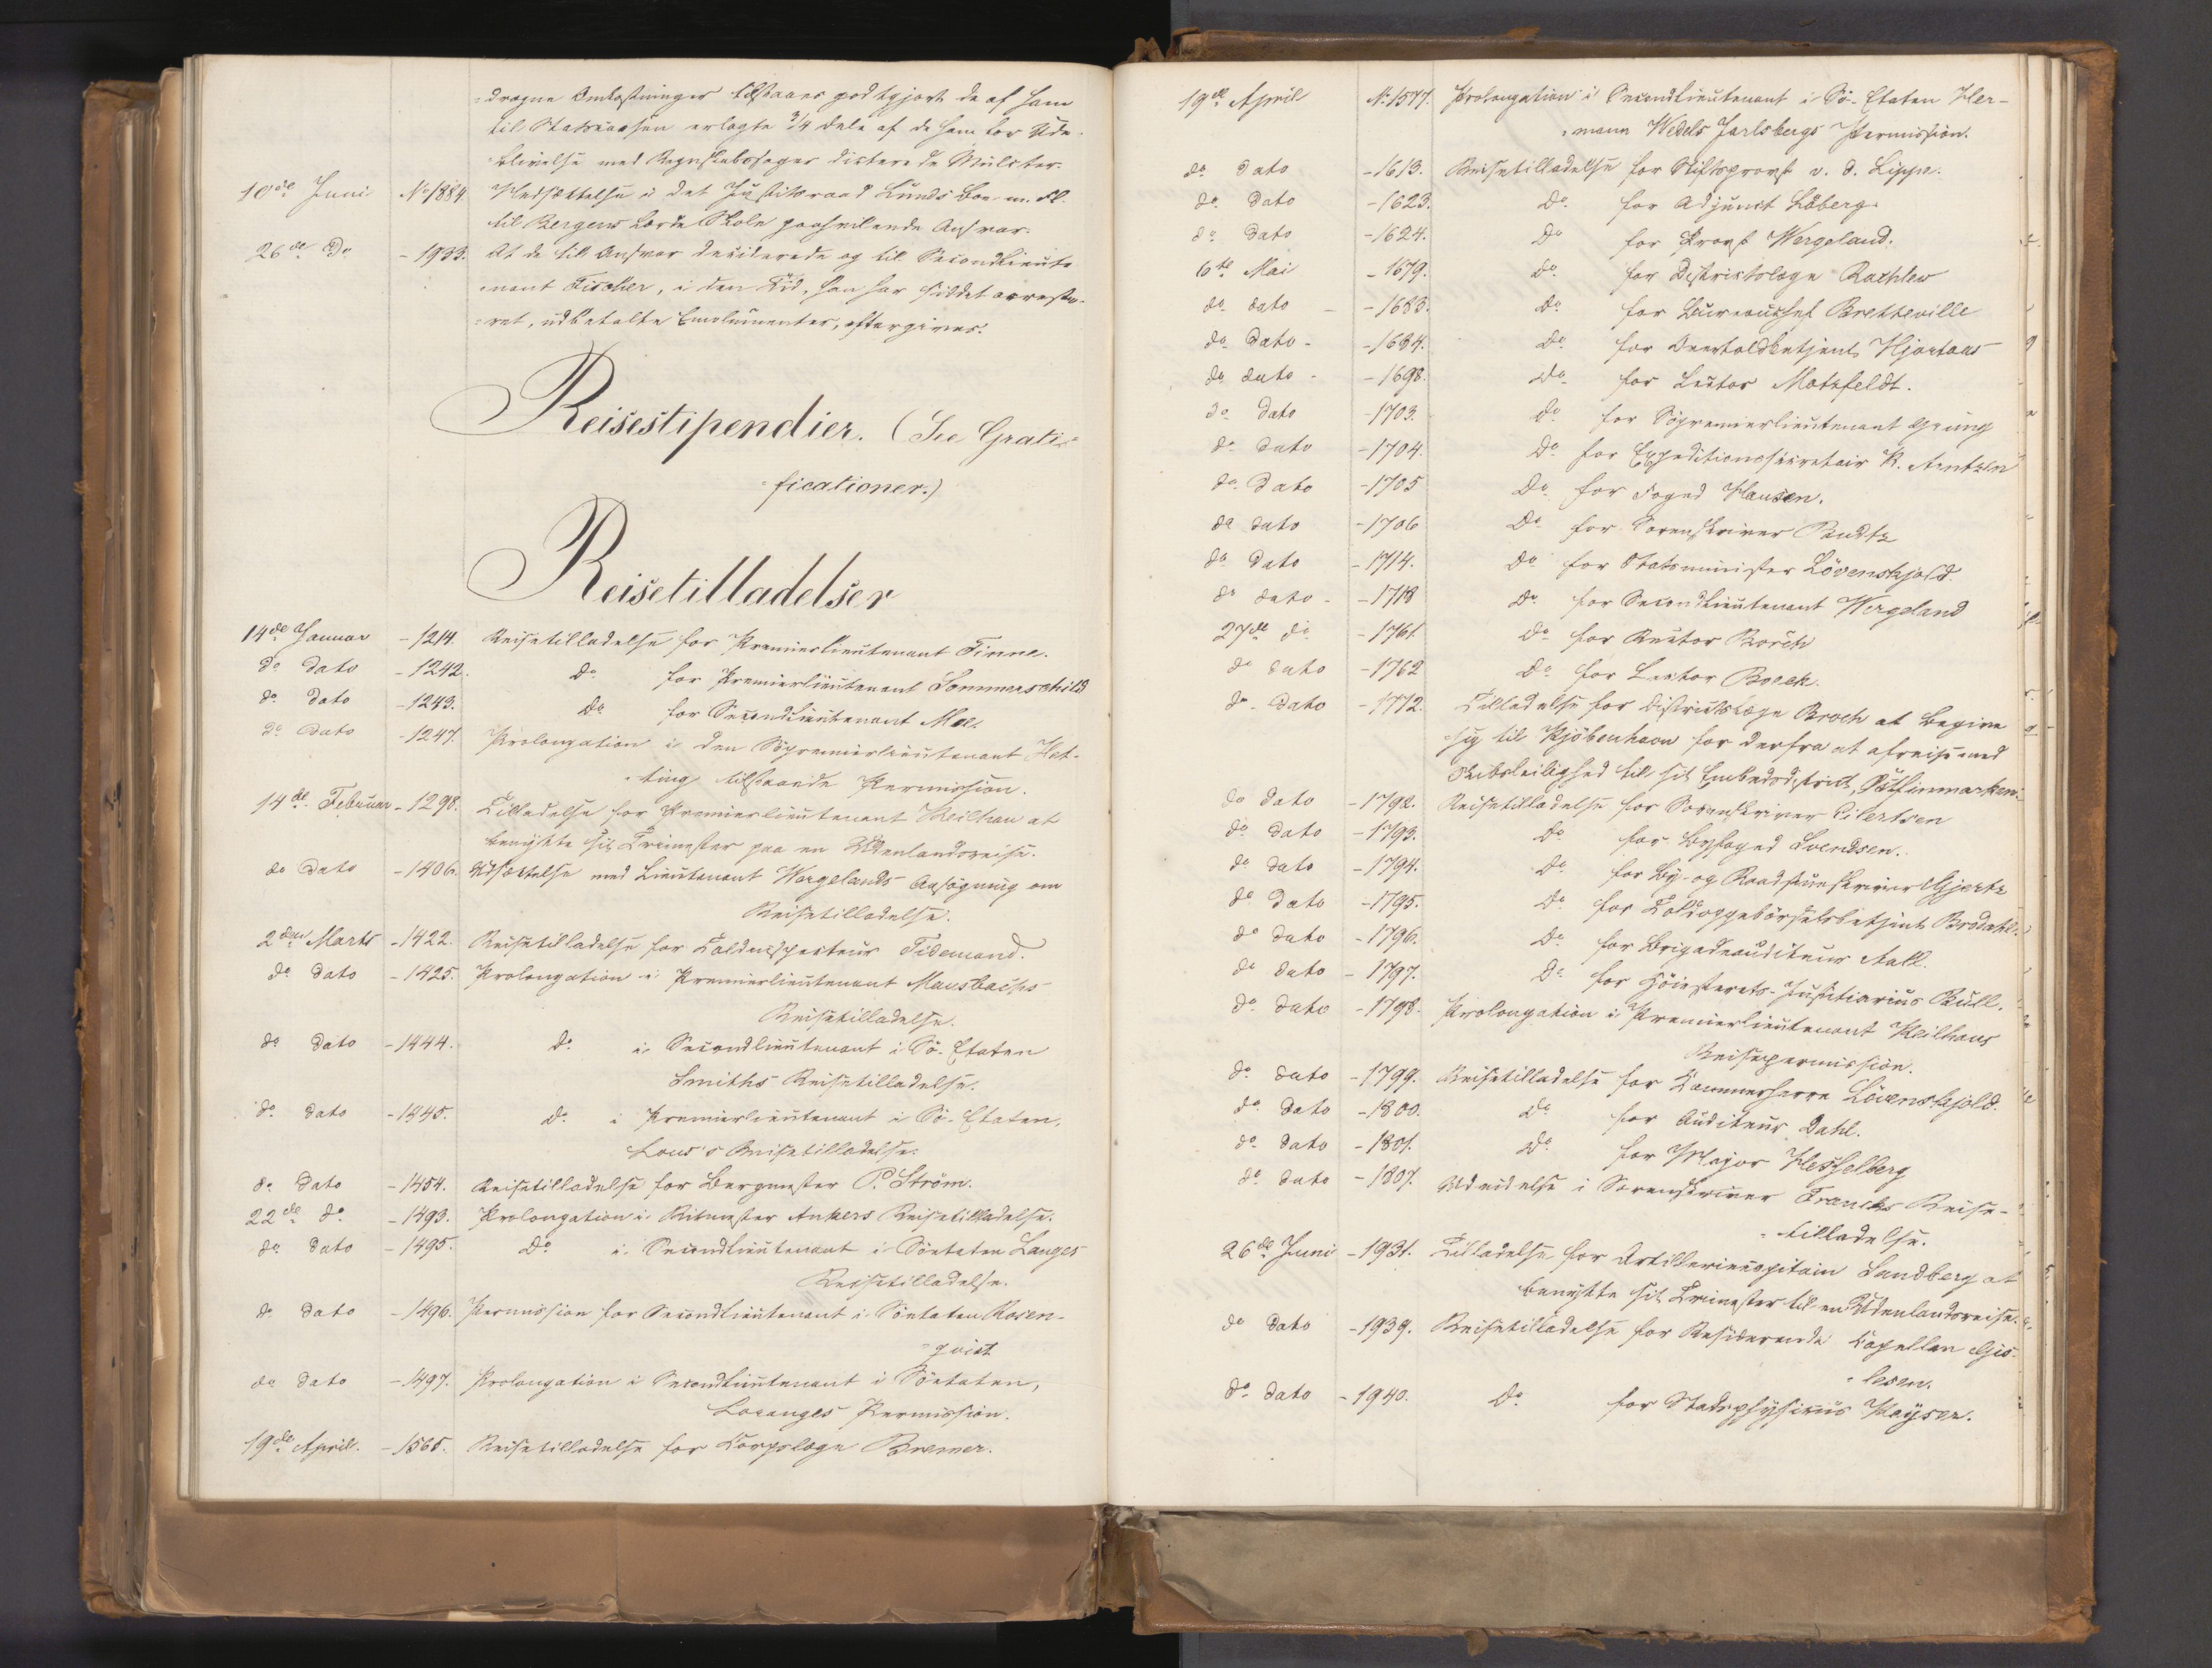 =dragne Omkostninger tilstaaes godtgjort de af ham
til Statskassen erlagte 3/4 dele af de ham for Ude-
blivelse med Regnskabssager dicterede Mulcter.
10de Juni No 1884. Nedsættelse i det Justitsraad Lunds Boe m. Fl.
til Bergens lærde Skole paahvilende Ansvar.
26de Do - 1933. At de til Ansvar deciderede og til Secondlieute
=nant Fischer, i den Tid, han har siddet arreste-
=ret, udbetalte Emolumenter, eftergives.
Reisestipendier. (See Grati-
=ficationer.)
Reisetilladelser
14de Januar - 1214. Reisetilladelse for Premierlieutenant Finne.
do dato - 1242. Do for Premierlieutenant Sommerschild
do dato - 1243. Do for Secondlieutenant Moe.
do dato - 1247. Prolongation i den Söpremierlieutenant Het-
=ting tilstaaede Permission.
14de Februar - 1298. Tilladelse for Premierlieutenant Keilhau at
benytte sit Trimester paa en Udenlandsreise.
do dato - 1406. Udsættelse med Lieutenant Wergelands Ansögning om
Reisetilladelse.
2den Marts - 1422. Reisetilladelse for Toldinspecteur Tidemand.
do dato - 1425. Prolongation i Premierlieutenant Mansbachs
Reisetilladelse.
do dato - 1444. Do i Secondlieutenant i Sö-Etaten
Smiths Reisetilladelse.
do dato - 1445. Do i Premierlieutenant i Sö-Etaten,
Lous's Reisetilladelse.
do dato - 1454. Reisetilladelse for Bergmester P. Ström.
22de do - 1493. Prolongation i Ritmester Ankers Reisetilladelse.
do dato - 1495. Do i Secondlieutenant i Söetaten Langes
Reisetilladelse.
do dato - 1496. Permission for Secondlieutenant i Söetaten Rosen-
=qvist
do dato - 1497. Prolongation i Secondlieutenant i Söetaten,
Loranges Permission.
19de April. - 1565. Reisetilladelse for Corpslæge Bremer.
19de April No 1577. Prolongation i Secondlieutenant i Sö-Etaten Her-
=mann Wedels Jarlsbergs Permission.
do dato - 1613. Reisetilladelse for Stiftsprovst v. d. Lippe.
do dato - 1623. Do for Adjunct Löberg.
do dato - 1624. Do for Provst Wergeland.
6te Mai - 1679. Do for Districtslæge Rathlew
do dato - 1683. Do for Bureauchef Bretteville
do dato - - 1684. Do for Overtoldbetjent Hjortaas
do dato - - 1698. Do for Lector Motzfeldt.
do dato - 1703. Do for Söpremierlieutenant Grüng
do dato - 1704. Do for Expeditionssecretair R. Arntzen
do dato - 1705 Do for Foged Hansen.
do dato - 1706 Do for Sorenskriver Budtz
do dato - 1714. Do for Statsminister Lövenskjold.
do dato - - 1718 Do for Secondlieutenant Wergeland
27de do - 1761. Do for Rector Borch
do dato - 1762 Do for Lector Boeck.
do dato - 1772. Tilladelse for Districtslæge Broch at begive
sig til Kjöbenhavn for derfra at afreise med
Skibsleilighed til sit Embedsdistrict, Östfinmarken.
do dato - 1792. Reisetilladelse for Sorenskriver Eilertsen
do dato - 1793. Do for Byfoged Svendsen.
do dato - 1794. Do for By- og Raadstueskriver Gjertz
do dato - 1795. Do for Toldoppebörselsbetjent Brodahl.
do dato - 1796. Do for Brigadeauditeur Aall.
do dato - 1797. Do for Höiesterets-Justitiarius Bull.
do dato - 1798. Prolongation i Premierlieutenant Keilhaus
Reisepermission.
do dato - 1799. Reisetilladelse for Kammerherre Lövenskjold.
do dato - 1800. Do for Auditeur Dahl.
do dato - 1801. Do for Major Hesselberg
do dato - 1807. Udvidelse i Sorenskriver Francks Reise-
=tilladelse.
26de Juni - 1931. Tilladelse for Artilleriecapitain Sandberg at
benytte sit Trimester til en Udenlandsreise.
do dato - 1939. Reisetilladelse for Residerende Capellan Gis-
=lesen.
do dato - 1940. Do for Stadsphysicus Kayser.